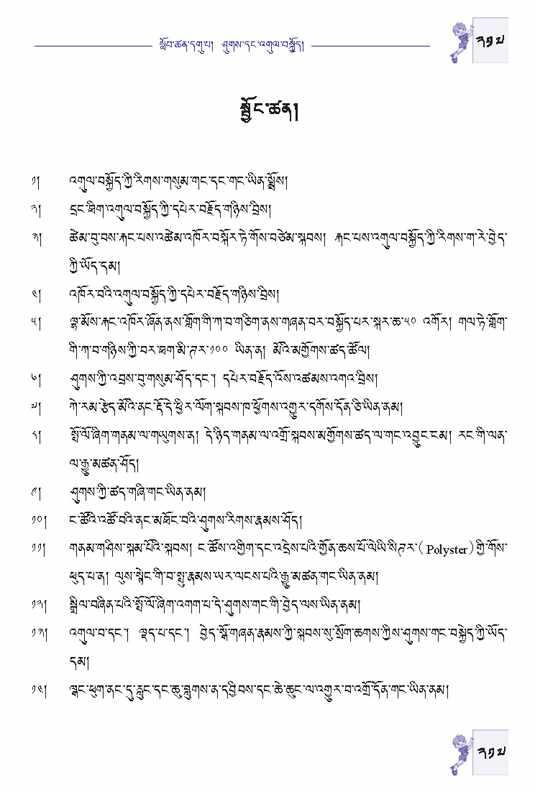 སློབ་ཚན་དགུ་པ། ཤུགས་དང་འགུལ་བསྐྱོད།
སྦྱོང་ཚན།
༡། འགུལ་བསྐྱོད་ཀྱི་རིགས་གསུམ་གང་དང་གང་ཡིན་སྨྲོས།
༢། དྲང་ཐིག་འགུལ་བསྐྱོད་ཀྱི་དཔེར་བརྗོད་གཉིས་བྲིས།
༣། ཚེམ་བུ་བས་རྐང་པས་འཚེམ་འཁོར་བསྐོར་ཏེ་གོས་བཙེམ་སྐབས། རྐང་པས་འགུལ་བསྐྱོད་ཀྱི་རིགས་ག་རེ་བྱེད་
ཀྱི་ཡོད་དམ།
༤། འཁོར་བའི་འགུལ་བསྐྱོད་ཀྱི་དཔེར་བརྗོད་གཉིས་བྲིས།
༥། ལྷ་མོས་རྐང་འཁོར་ཞོན་ནས་གློག་གི་ཀ་བ་གཅིག་ནས་གཞན་བར་བསྐྱོད་པར་སྐར་ཆ་༥༠ འགོར། གལ་ཏེ་གློག་
གི་ཀ་བ་གཉིས་ཀྱི་བར་ཐག་མི་ཊར་༡༠༠ ཡིན་ན། མོའི་མགྱོགས་ཚད་ཚོལ།
༦། ཤུགས་ཀྱི་འབྲས་བུ་གསུམ་ཤོད་དང་། དཔེར་བརྗོད་འོས་འཚམས་འགའ་བྲིས།
༧། ཀེ་རམ་རྩེད་མོའི་ནང་རྡོ་དེ་ཕྱིར་ལོག་སྐབས་ཁ་ཕྱོགས་འགྱུར་དགོས་དོན་ཅི་ཡིན་ནམ།
༨། སྤོ་ལོ་ཞིག་གནམ་ལ་གཡུགས་ན། དེ་ཉིད་གནམ་ལ་འགྲོ་སྐབས་མགྱོགས་ཚད་ལ་གང་འབྱུང་ངམ། རང་གི་ལན་
ལ་རྒྱུ་མཚན་ཤོད།
༩། ཤུགས་ཀྱི་ཚད་གཞི་གང་ཡིན་ནམ།
༡༠། ང་ཚོའི་འཚོ་བའི་ནང་མཐོང་བའི་ཤུགས་རིགས་རྣམས་ཤོད།
༡༡། གནམ་གཤིས་སྐམ་པོའི་སྐབས། ང་ཚོས་འགྱིག་དང་འདྲེས་པའི་གྱོན་ཆས་པོ་ལེ་ཡི་སི་ཊར་( Polyster) གྱི་གོས་
ཕུད་པ་ན། ལུས་སྟེང་གི་བ་སྤུ་རྣམས་ཡར་ལངས་པའི་རྒྱུ་མཚན་གང་ཡིན་ནམ།
༡༢། སྒྲིལ་བཞིན་པའི་སྤོ་ལོ་ཞིག་འགག་པ་དེ་ཤུགས་གང་གི་བྱེད་ལས་ཡིན་ནམ།
༡༣། འགུལ་བ་དང་། ལྡད་པ་དང་། བྱེད་སྒོ་གཞན་རྣམས་ཀྱི་སྐབས་སུ་སྲོག་ཆགས་ཀྱིས་ཤུགས་གང་བསྐྱེད་ཀྱི་ཡོད་
དམ།
༡༤། ལྦང་ཕུག་ནང་དུ་རླུང་དང་ཆུ་བླུགས་ན་དབྱིབས་དང་ཆེ་ཆུང་ལ་འགྱུར་བ་འགྲོ་དོན་གང་ཡིན་ནམ།